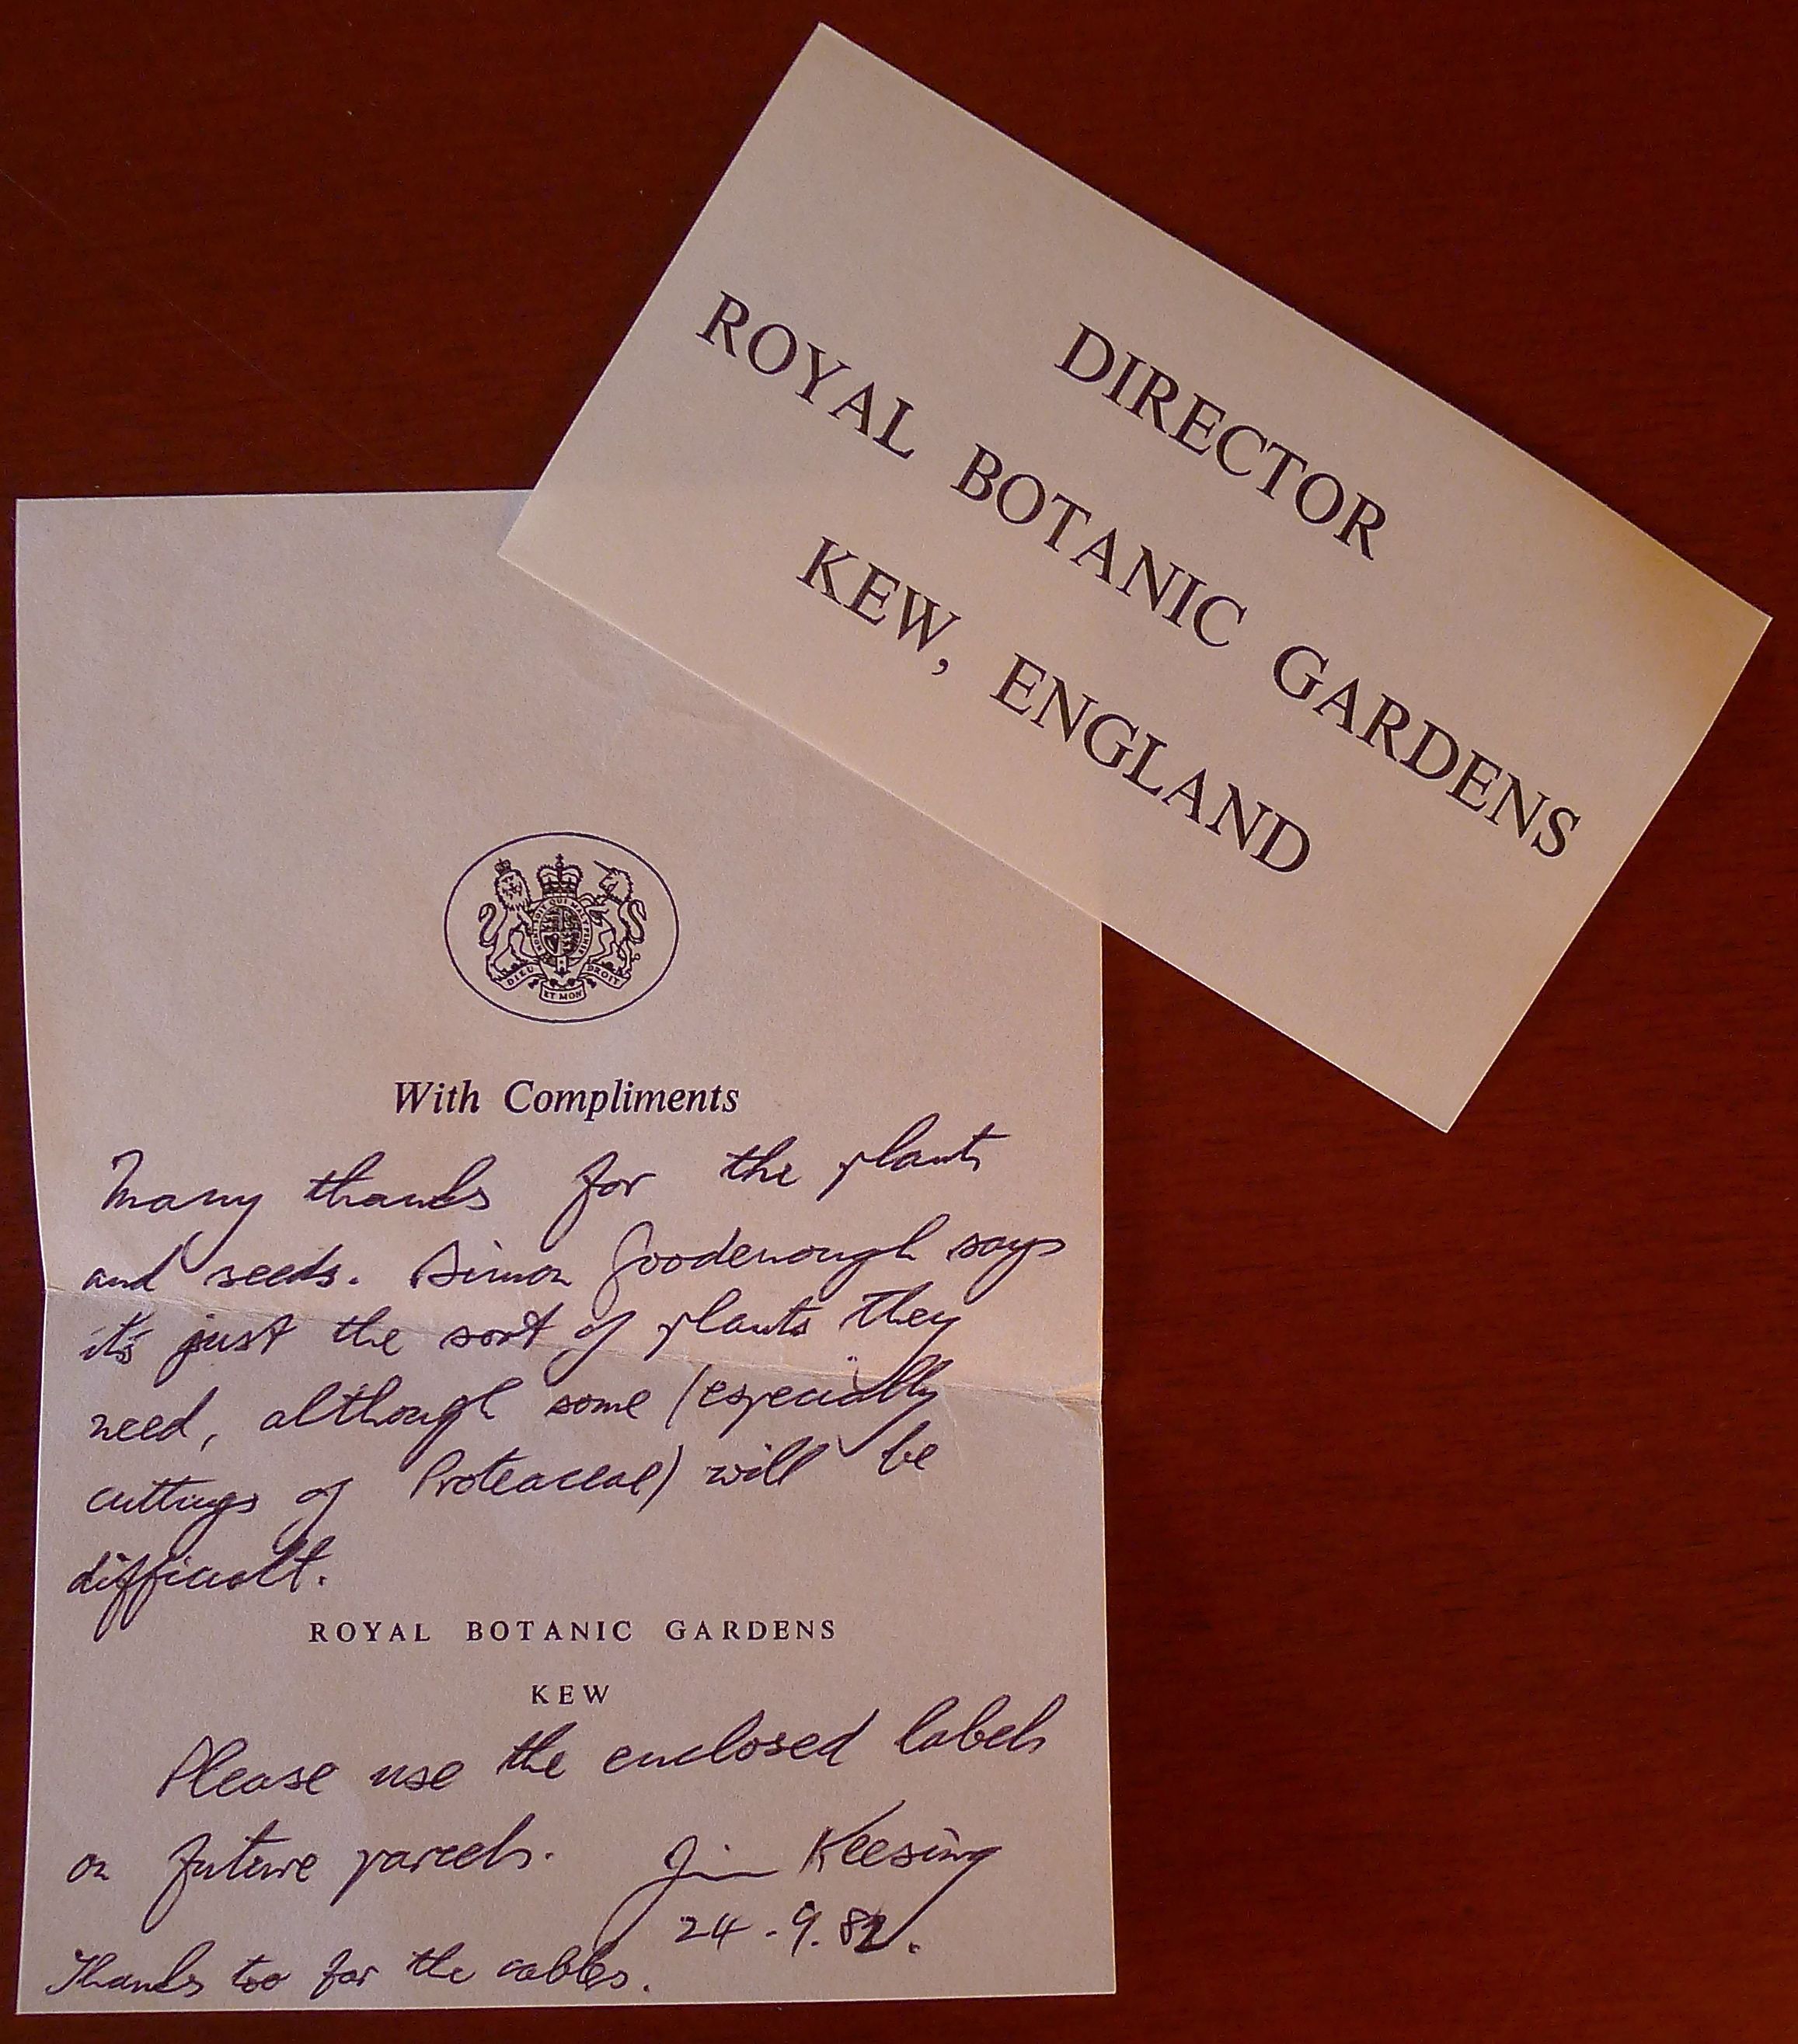 DIRECTOR
ROYAL BOTANIC GARDENS
KEW, ENGLAND
HONI SOIT QUI MAL Y PENSE
DIEU ET MON DROIT
With Compliments
Many thanks for the plants
and seeds. Simon Goodenough says
it's just the sort of plants they
need, although some (especially
cuttings of Proteaceae) will be
difficult.
ROYAL BOTANIC GARDENS
KEW
Please use the enclosed labels
on future parcels. Jim Keesing
24.9.82.
Thanks too for the cables.